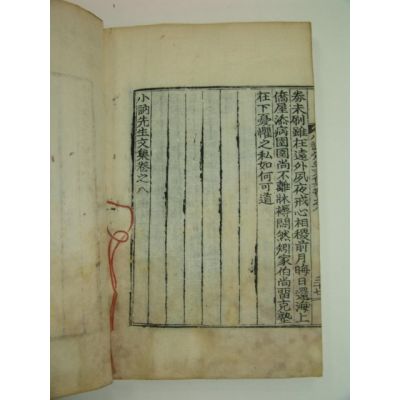 券未刷雖在遠外夙夜戒心相稷前月晦日還海上
僑屋添病圇圇尚不離牀褥悶然姻家伯尚留克塾
在下憂懼之私如何可道
小訥先生文集卷之八